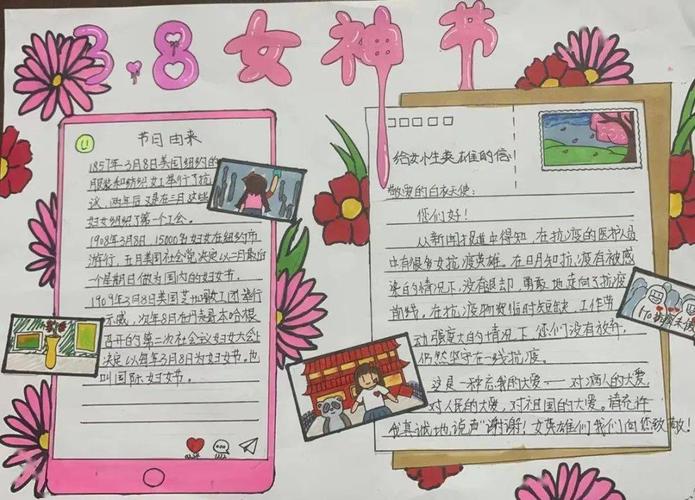 3.8女神节
节日由来
1857年3月8日美国纽约的
服装和纺织女工举行了抗
议，两年后又是在三月，这些
妇女组织了第一个工会。
1908年3月8日，15000名妇女在纽约市
游行，五月美国社会党决定以二月最后
一个星期日做为国内的妇女节。
1909年3月8日美国芝加哥女工团举行
示威，次年8月在丹麦哥本哈根
召开的第二次社会议妇女大会上
决定以每年3月8日为妇女节。也
叫国际妇女节。
给女小生英雄的信
敬爱的白衣天使：
您们好！
从新闻报道中得知，在抗疫的医护人员
中有很多女抗疫英雄。在明知抗疫有被感
染的情况下，没有退却，勇敢地走向了抗疫
前线，在抗疫物资临时短缺，工作劳
动强度大的情况下，您们没有放弃，
仍然坚守在一线抗疫。
这是一种忘我的大爱——对病人的大爱，
对人民的大爱，对祖国的大爱。请允许
我真诚地说声“谢谢！女英雄们我们向您致敬！